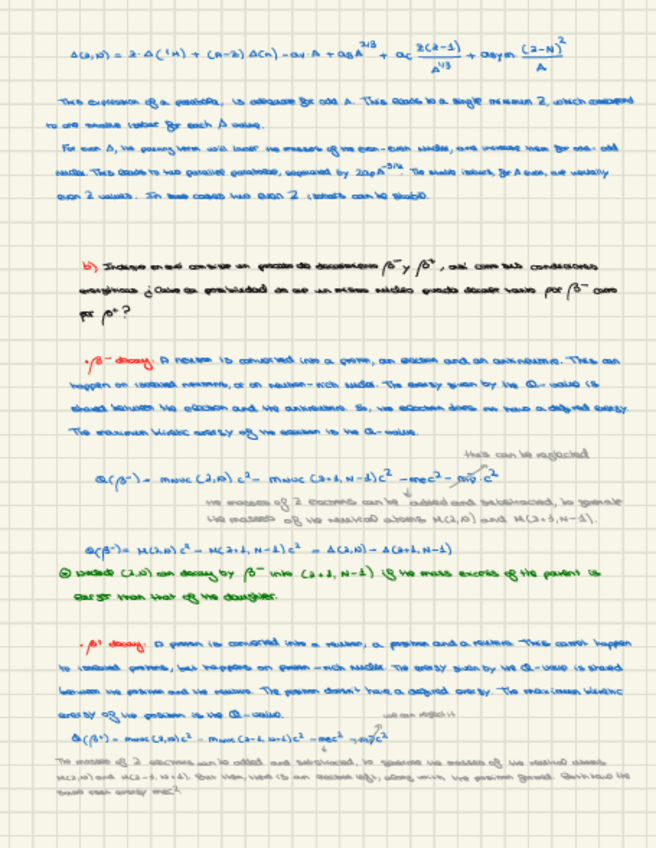 Δ(Z,N) = Z·Δ(¹H) + (A-Z) Δ(n) - av·A + as A^2/3 + ac Z(Z-1)/A^1/3 + asym (Z-N)²/A
This expression of a parabola, is adequate for odd A. This leads to a single minimum Z, which correspond
to one stable isobar for each A value.
For even A, the pairing term will lower the masses of the even-even nuclei, and increase them for odd-odd
nuclei. This leads to two parallel parabolas, separated by 2apA^-3/4. The stable isobars, for A even, are usually
even Z values. In some cases two even Z isobars can be stable.
b) Indique en qué consiste un proceso de decaimiento β⁻ y β⁺, así como sus condiciones
energéticas ¿Cabe la posibilidad de que un mismo núcleo pueda decaer tanto por β⁻ como
por β⁺?
· β⁻ decay: A neutron is converted into a proton, an electron and an antineutrino. This can
happen on isolated neutrons, or on neutron-rich nuclei. The energy given by the Q-value is
shared between the electron and the antineutrino. So, the electron does not have a defined energy.
The maximum kinetic energy of the electron is the Q-value.
this can be neglected
Q(β⁻) = mnuc (Z,N) c² - mnuc (Z+1, N-1) c² - mec² - mν̄ c²
The masses of Z electrons can be added and substracted, to generate
the masses of the neutral atoms M(Z,N) and M(Z+1, N-1).
Q(β⁻) = M(Z,N) c² - M(Z+1, N-1) c² = Δ(Z,N) - Δ(Z+1, N-1)
(Z,N) can decay by β⁻ into (Z+1, N-1) if the mass excess of the parent is
larger than that of the daughter.
· β⁺ decay: A proton is converted into a neutron, a positron and a neutrino. This cannot happen
to isolated protons, but happens on proton-rich nuclei. The energy given by the Q-value is shared
between the positron and the neutrino. The positron doesn't have a defined energy. The maximum kinetic
energy of the positron is the Q-value.
we can neglect it
Q(β⁺) = mnuc (Z,N) c² - mnuc (Z-1, N+1) c² - mec² - mν c²
The masses of Z electrons can be added and substracted, to generate the masses of the neutral atoms
M(Z,N) and M(Z-1, N+1). But then, there is an electron left, along with the positron formed. Both have the
same rest energy mec².